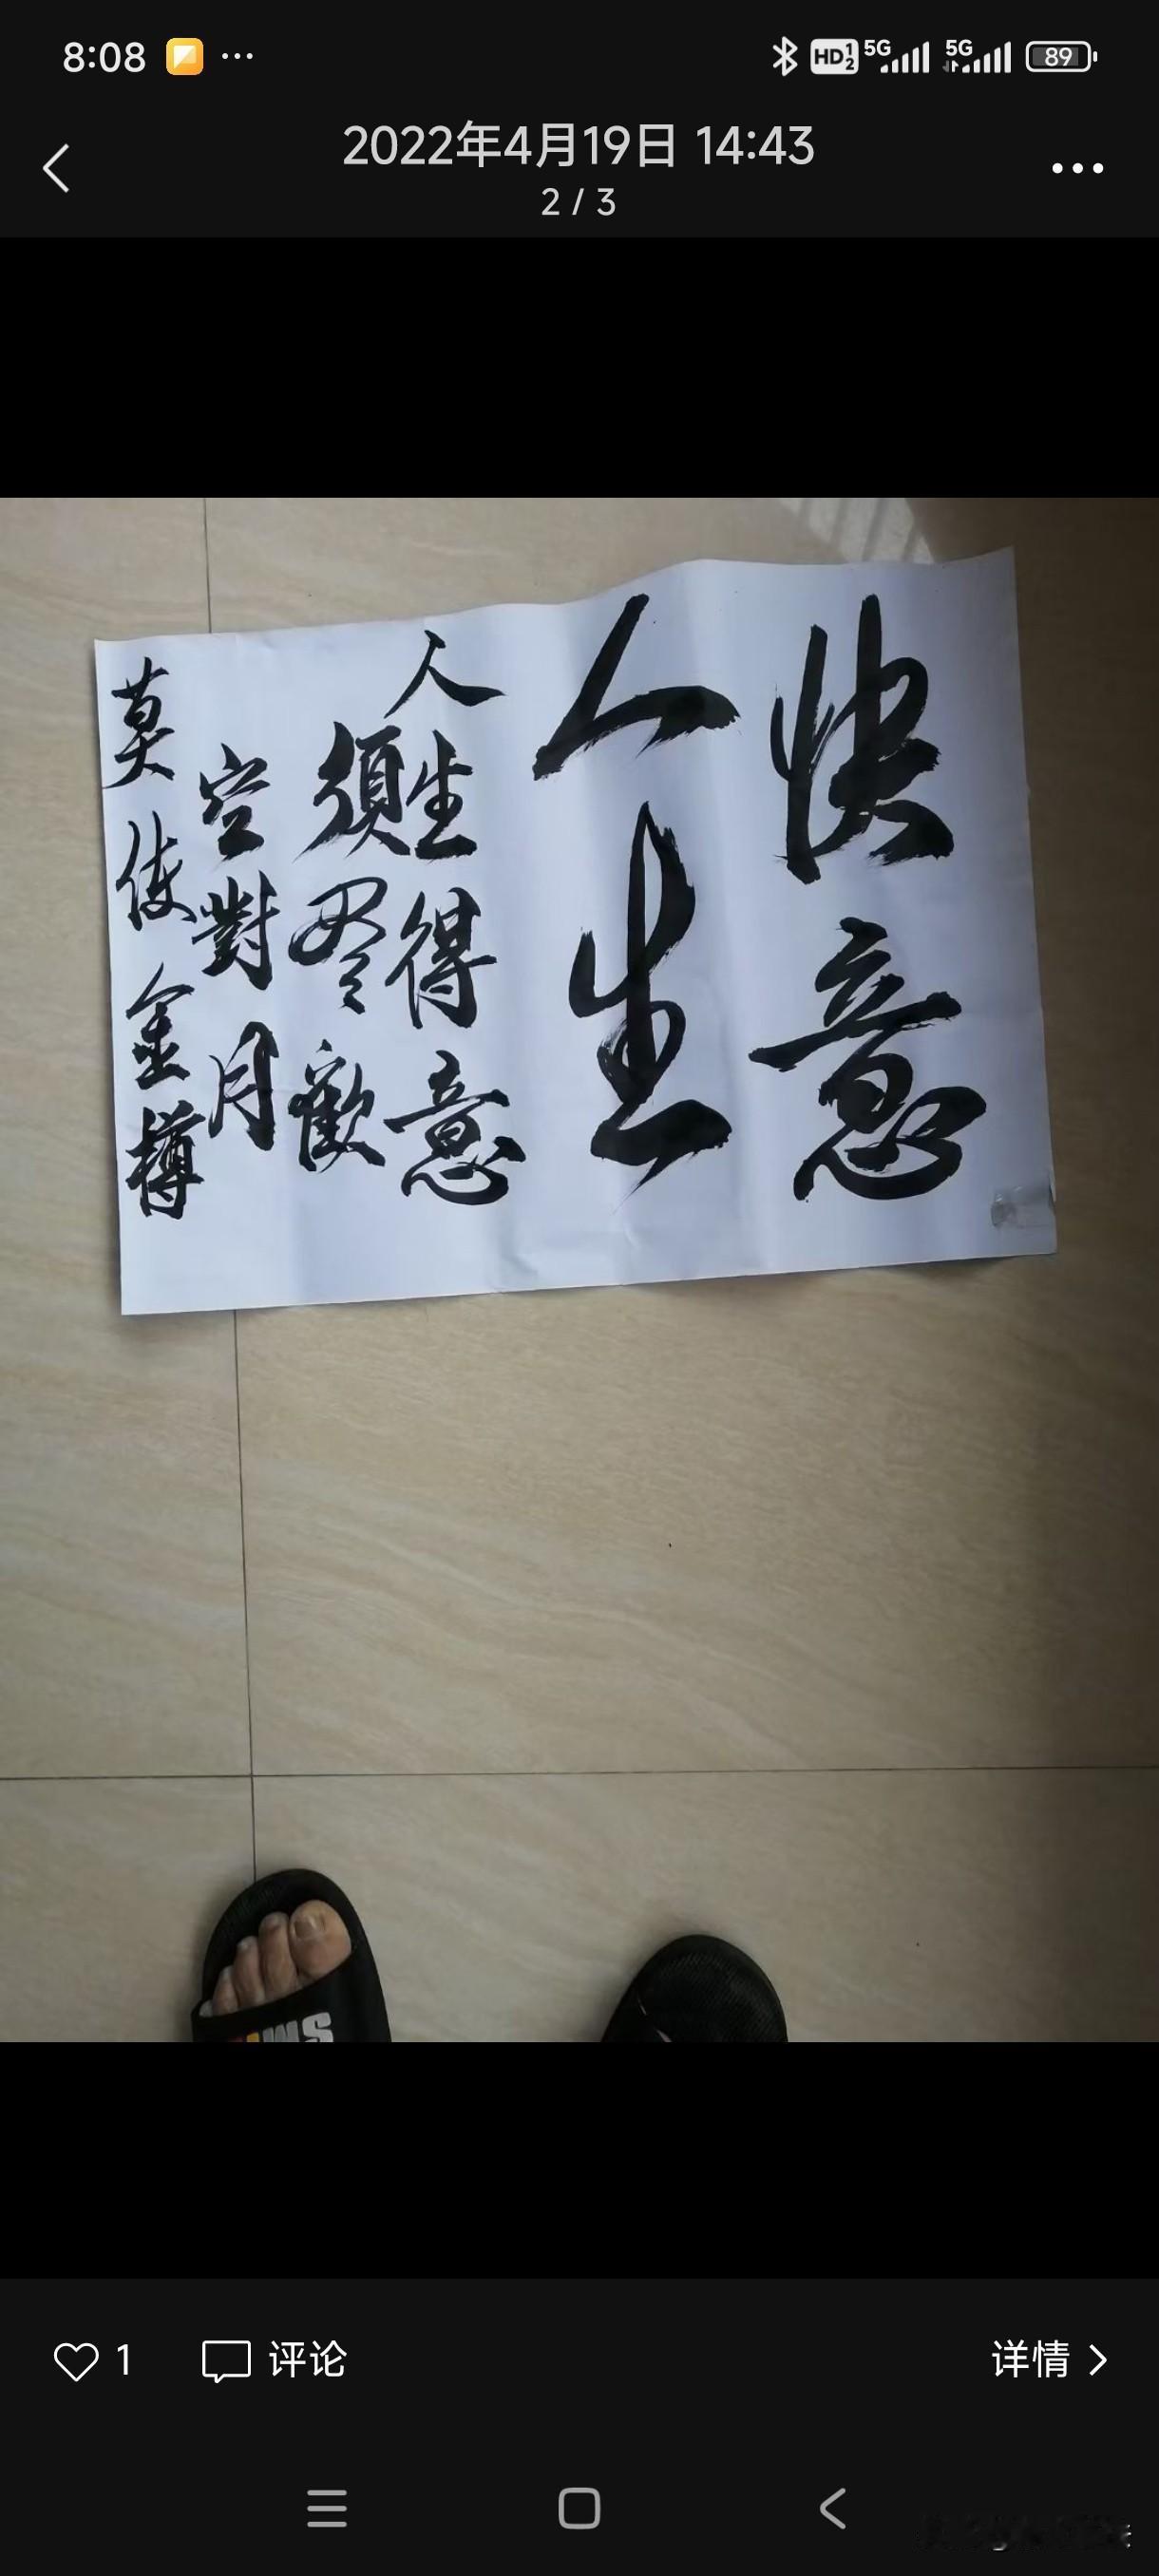 8:08
HD 1 2 5G 5G 89
2022年4月19日 14:43
2 / 3
快意
人生
人生得意
須尽歡
莫使金樽
空對月
SM
1 评论 详情